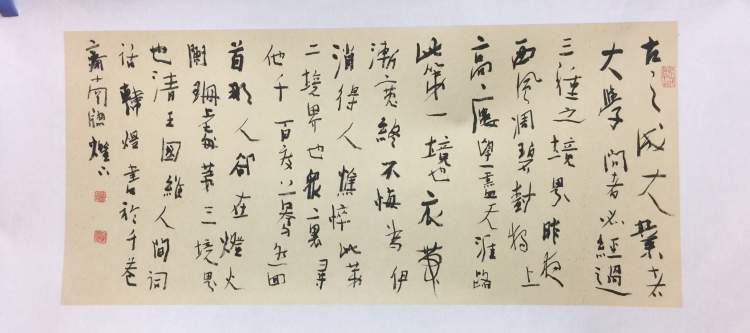 古之成大業者
大學問者必經過
三種之境界昨夜
西風凋碧樹獨上
高樓望盡天涯路
此第一境也衣帶
漸寬終不悔為伊
消得人憔悴此第
二境界也眾裏尋
他千百度驀然回
首那人卻在燈火
闌珊處第三境界
也清王國維人間詞
話韓煜書於千卷
齋南窗燈下